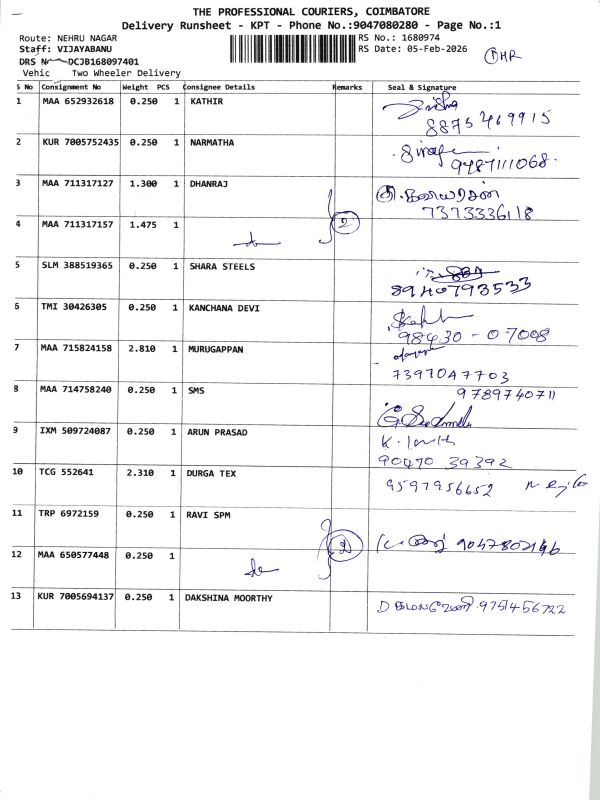 THE PROFESSIONAL COURIERS, COIMBATORE
Delivery Runsheet - KPT - Phone No.:9047080280 - Page No.:1
Route: NEHRU NAGAR RS No.: 1680974
Staff: VIJAYABANU RS Date: 05-Feb-2026
DRS N DCJB168097401
Vehic Two Wheeler Delivery
S No Consignment No Weight PCS Consignee Details Remarks Seal & Signature
1 MAA 652932618 0.250 1 KATHIR
8875469915
2 KUR 7005752435 0.250 1 NARMATHA
9487111068
3 MAA 711317127 1.300 1 DHANRAJ
7373336118
4 MAA 711317157 1.475 1 2
5 SLM 388519365 0.250 1 SHARA STEELS
8940793533
6 TMI 30426305 0.250 1 KANCHANA DEVI
98430-07008
7 MAA 715824158 2.810 1 MURUGAPPAN
7397047703
8 MAA 714758240 0.250 1 SMS 9789740711
9 IXM 509724087 0.250 1 ARUN PRASAD
90470 39392
10 TCG 552641 2.310 1 DURGA TEX 9597956652
11 TRP 6972159 0.250 1 RAVI SPM
2 9047802146
12 MAA 650577448 0.250 1
13 KUR 7005694137 0.250 1 DAKSHINA MOORTHY 9751456722